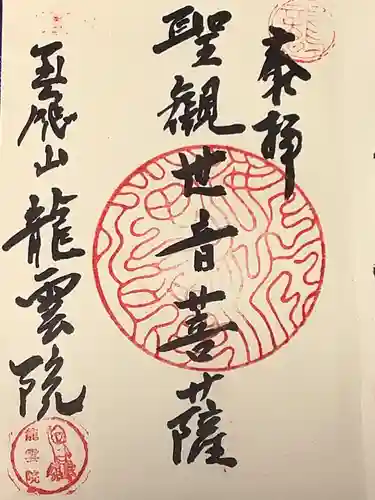 奉拝
聖觀世音菩薩
山龍雲院
龍雲院